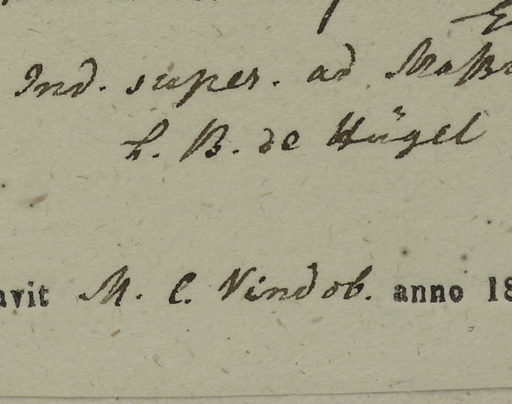 Ind. super. ad Maßu
L. B. de Hügel
avit M. C. Vindob. anno 18